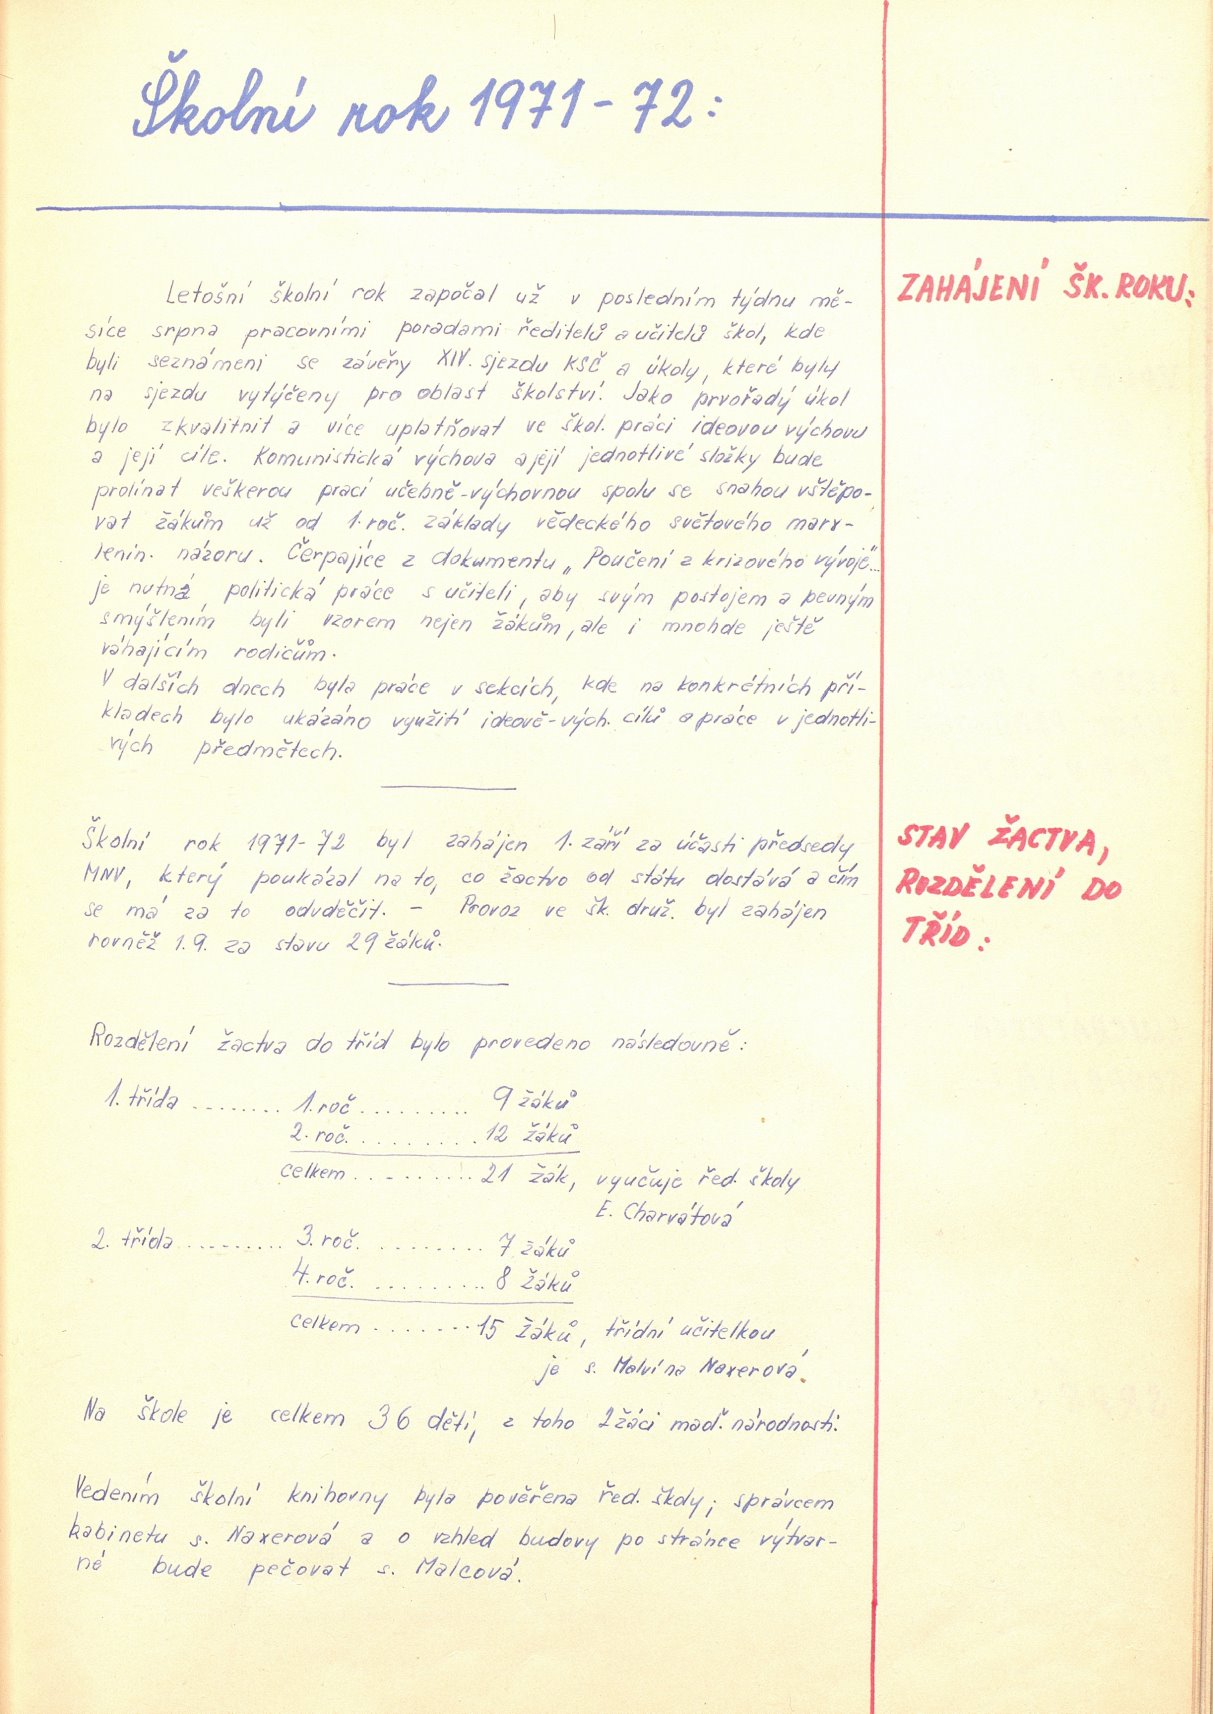 Školní rok 1971-72:
ZAHÁJENÍ ŠK. ROKU:
Letošní školní rok započal už v posledním týdnu mě-
síce srpna pracovními poradami ředitelů a učitelů škol, kde
byli seznámeni se závěry XIV. sjezdu KSČ a úkoly, které byly
na sjezdu vytýčeny pro oblast školství. Jako prvořadý úkol
bylo zkvalitnit a více uplatňovat ve škol. práci ideovou výchovu
a její cíle. Komunistická výchova a její jednotlivé složky bude
prolínat veškerou prací učebně-výchovnou spolu se snahou vštěpo-
vat žákům už od 1. roč. základy vědeckého světového marx-
lenin. názoru. Čerpajíce z dokumentu „Poučení z krizového vývoje"...
je nutná politická práce s učiteli, aby svým postojem a pevným
smýšlením byli vzorem nejen žákům, ale i mnohde ještě
váhajícím rodičům.
V dalších dnech byla práce v sekcích, kde na konkrétních pří-
kladech bylo ukázáno využití ideově-vých. cílů a práce v jednotli-
vých předmětech.
STAV ŽACTVA,
ROZDĚLENÍ DO
TŘÍD:
Školní rok 1971-72 byl zahájen 1. září za účasti předsedy
MNV, který poukázal na to, co žactvo od státu dostává a čím
se má za to odvděčit. - Provoz ve šk. druž. byl zahájen
rovněž 1.9. za stavu 29 žáků.
Rozdělení žactva do tříd bylo provedeno následovně:
1. třída ........ 1. roč ......... 9 žáků
2. roč. ......... 12 žáků
celkem ......... 21 žák, vyučuje řed. školy
E. Charvátová
2. třída .......... 3. roč. ........ 7 žáků
4. roč. ......... 8 žáků
celkem ........ 15 žáků, třídní učitelkou
je s. Malvína Naxerová.
Na škole je celkem 36 dětí, z toho 2 žáci maď. národnosti.
Vedením školní knihovny byla pověřena řed. školy; správcem
kabinetu s. Naxerová a o vzhled budovy po stránce výtvar-
né bude pečovat s. Malcová.